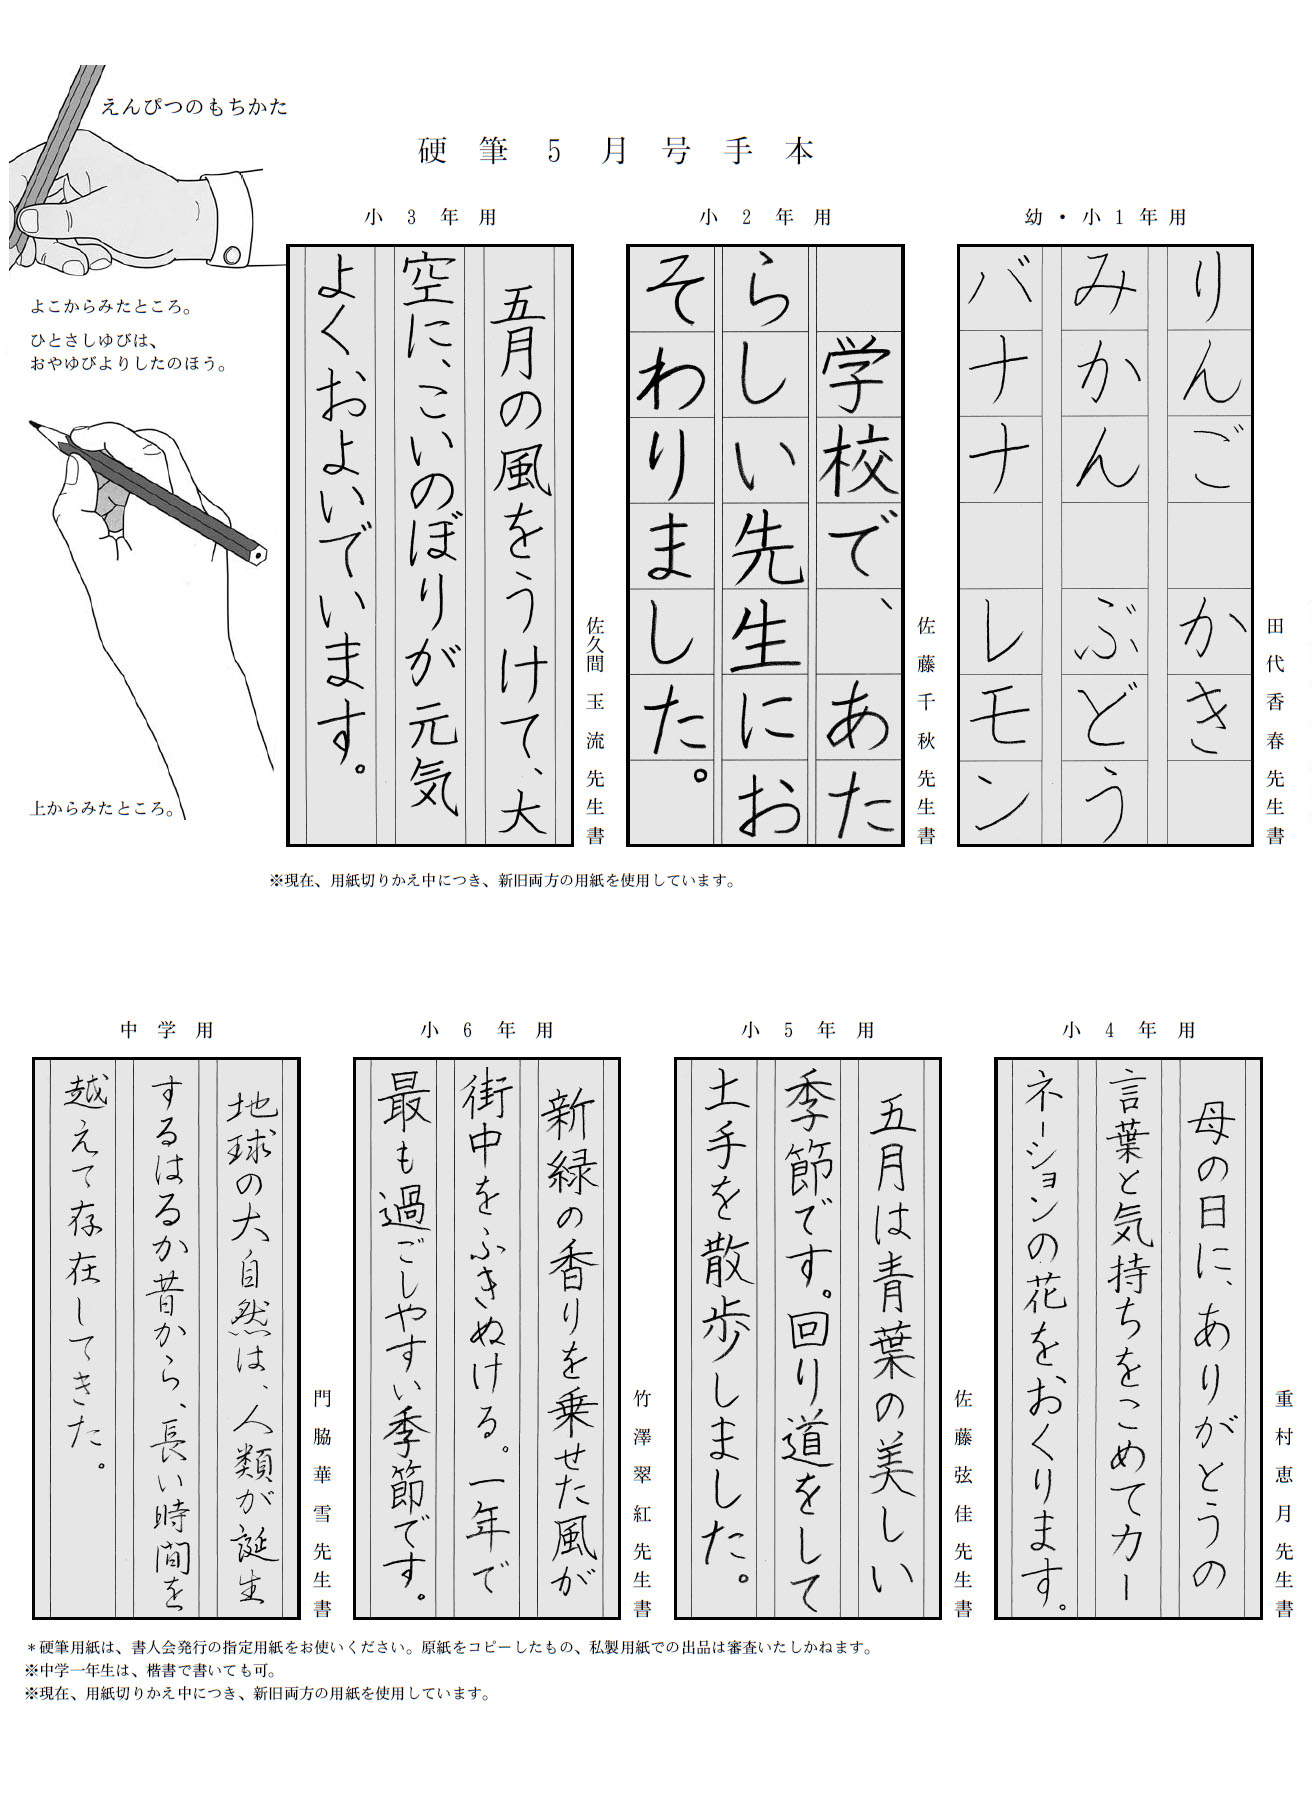 硬筆5月号手本
えんぴつのもちかた
よこからみたところ。
ひとさしゆびは、
おやゆびよりしたのほう。
上からみたところ。
幼・小1年用
りんご かき
みかん ぶどう
バナナ レモン
田代香春先生書
小2年用
学校で、あた
らしい先生にお
そわりました。
佐藤千秋先生書
小3年用
五月の風をうけて、大
空に、こいのぼりが元気
よくおよいでいます。
佐久間玉流先生書
※現在、用紙切りかえ中につき、新旧両方の用紙を使用しています。
小4年用
母の日に、ありがとうの
言葉と気持ちをこめてカー
ネーションの花をおくります。
重村恵月先生書
小5年用
五月は青葉の美しい
季節です。回り道をして
土手を散歩しました。
佐藤弦佳先生書
小6年用
新緑の香りを乗せた風が
街中をふきぬける。一年で
最も過ごしやすい季節です。
竹澤翠紅先生書
中学用
地球の大自然は、人類が誕生
するはるか昔から、長い時間を
越えて存在してきた。
門脇華雪先生書
＊硬筆用紙は、書人会発行の指定用紙をお使いください。原紙をコピーしたもの、私製用紙での出品は審査いたしかねます。
※中学一年生は、楷書で書いても可。
※現在、用紙切りかえ中につき、新旧両方の用紙を使用しています。